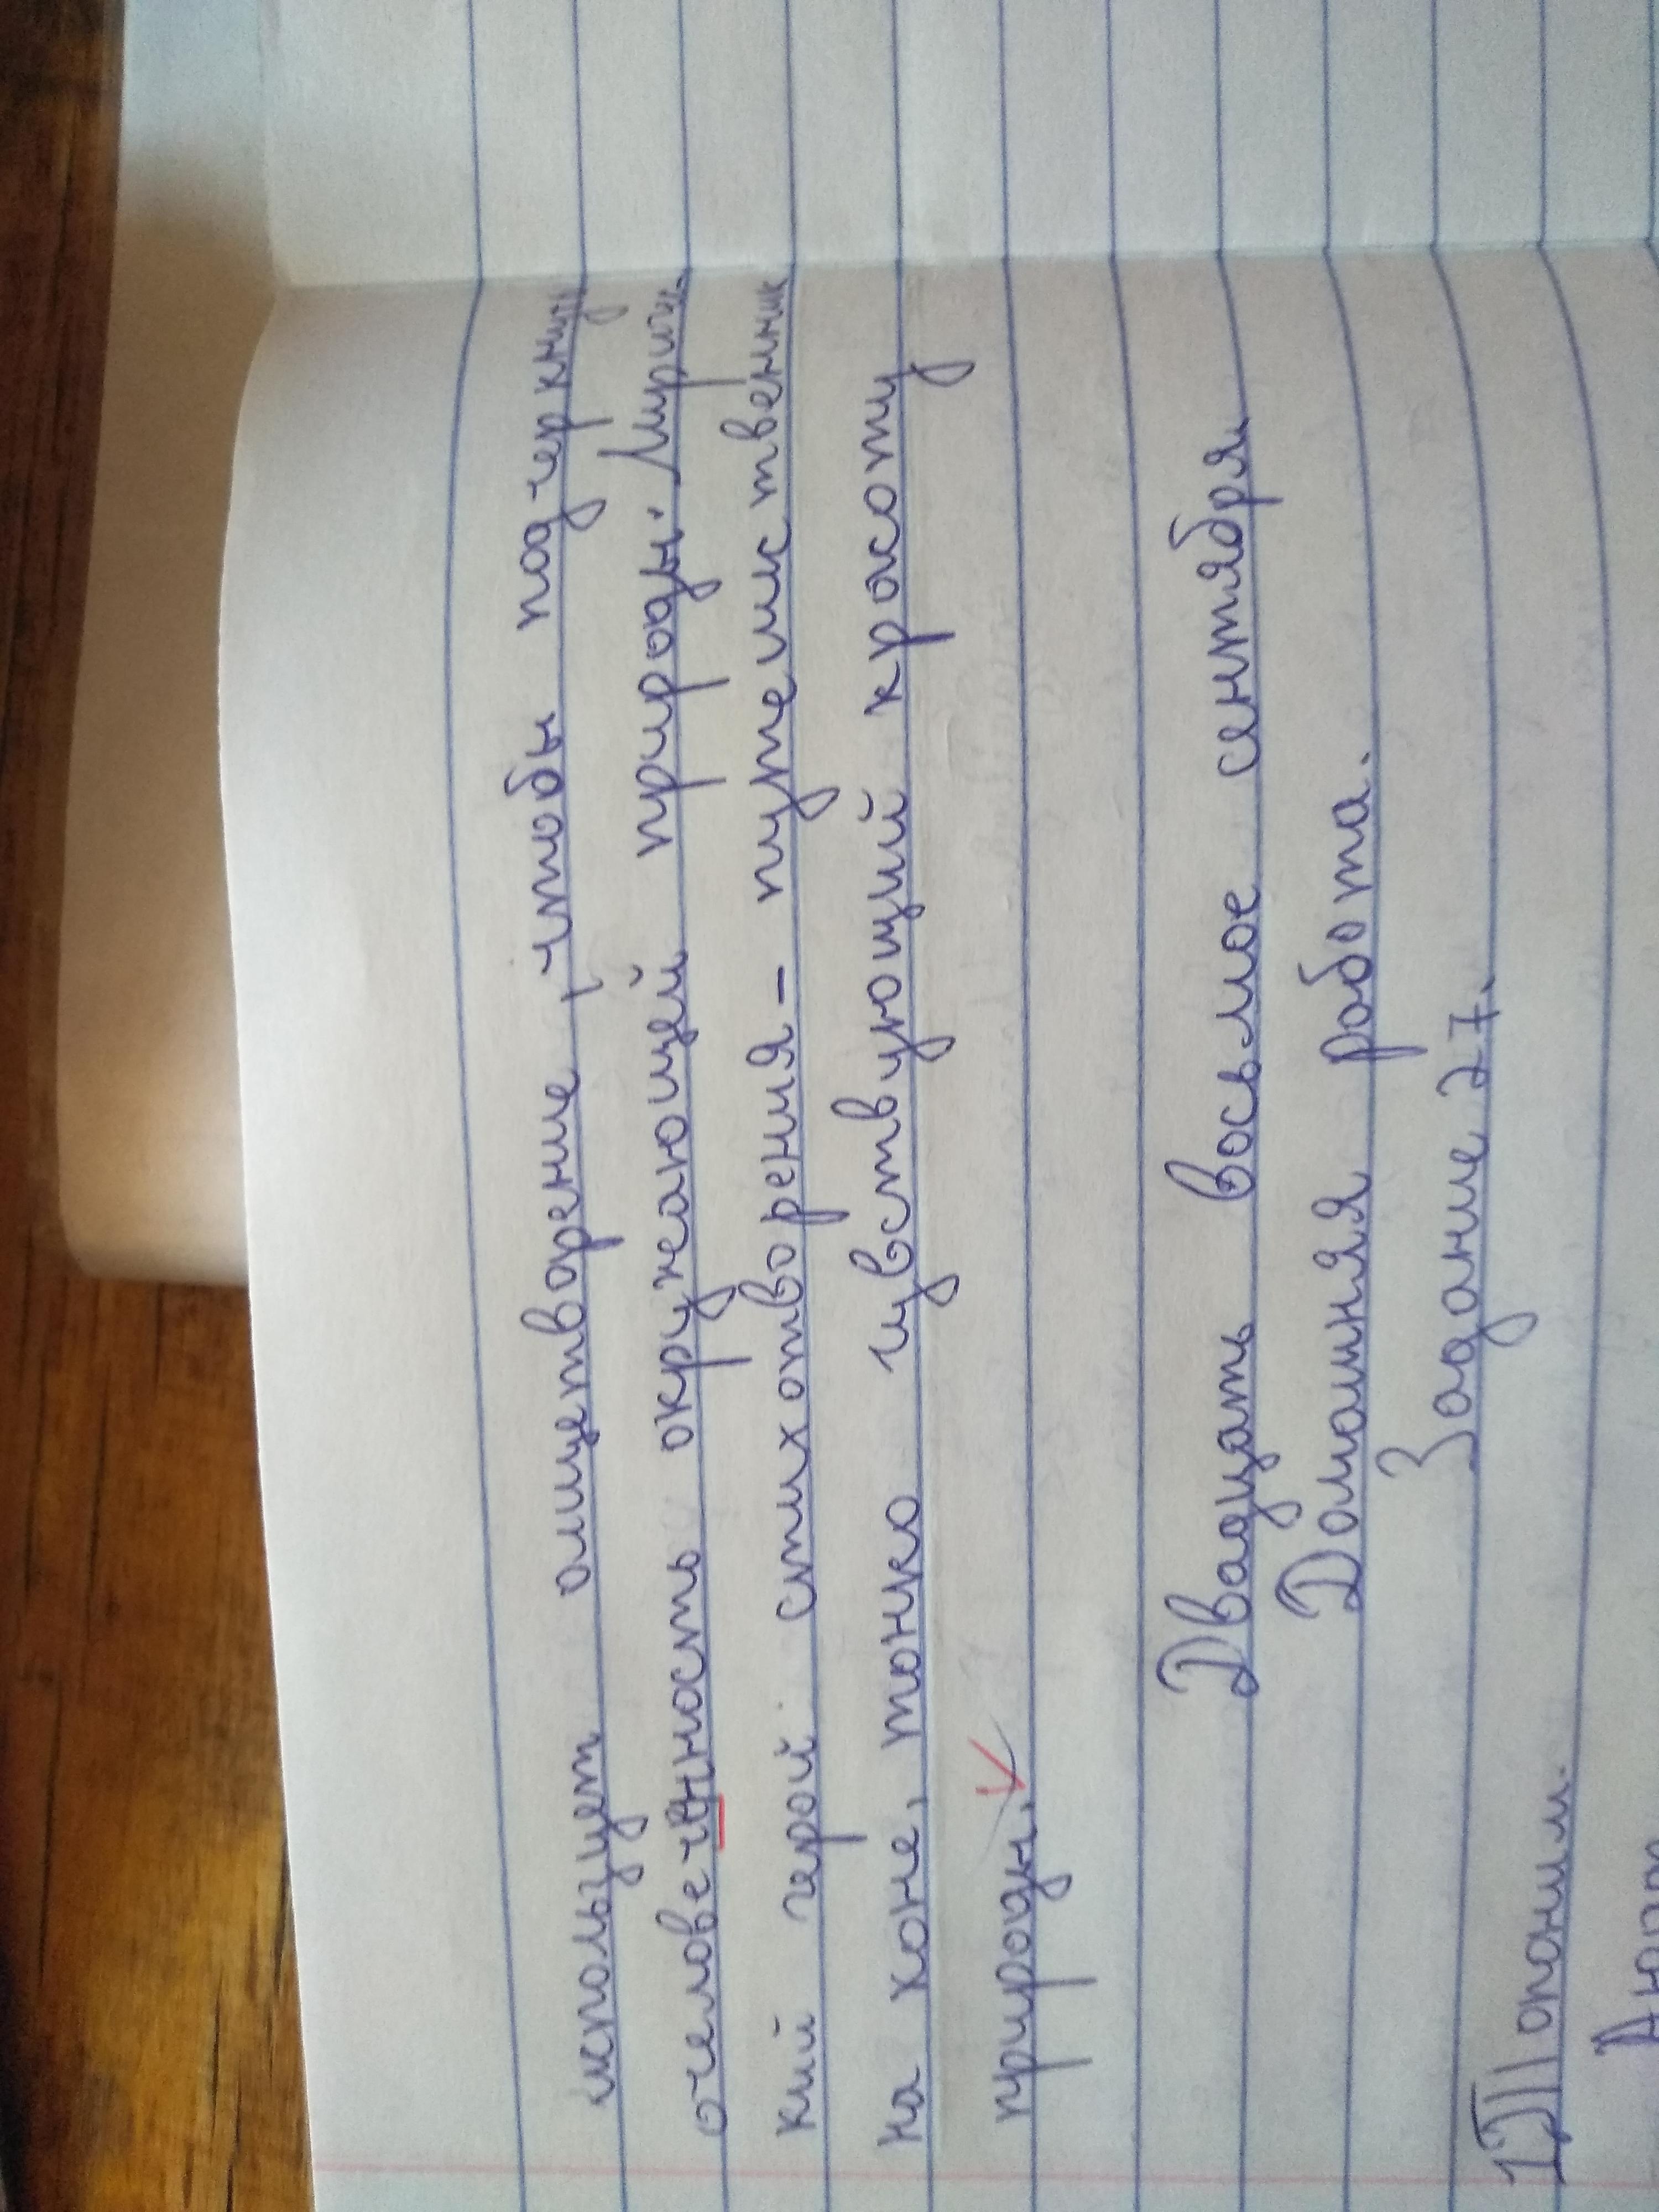 использует олицетворение, чтобы подчеркнуть
очеловеченность окружающей природы. Лиричес
кий герой стихотворения - путешественник
на коне, тонко чувствующий красоту
природы.
Двадцать восьмое сентября.
Домашняя работа.
Задание 27.
1) Топоним.